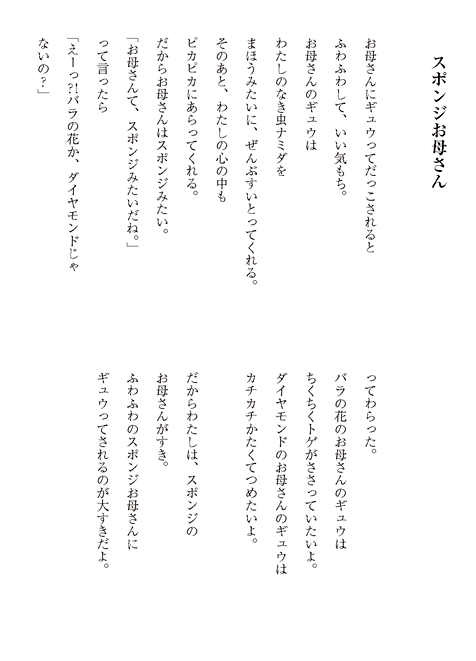 スポンジお母さん
お母さんにギュウってだっこされると
ふわふわして、いい気もち。
お母さんのギュウは
わたしのなき虫ナミダを
まほうみたいに、ぜんぶすいとってくれる。
そのあと、わたしの心の中も
ピカピカにあらってくれる。
だからお母さんはスポンジみたい。
「お母さんて、スポンジみたいだね。」
って言ったら
「えーっ?!バラの花か、ダイヤモンドじゃ
ないの?」
ってわらった。
バラの花のお母さんのギュウは
ちくちくトゲがささっていたいよ。
ダイヤモンドのお母さんのギュウは
カチカチかたくてつめたいよ。
だからわたしは、スポンジの
お母さんがすき。
ふわふわのスポンジお母さんに
ギュウってされるのが大すきだよ。